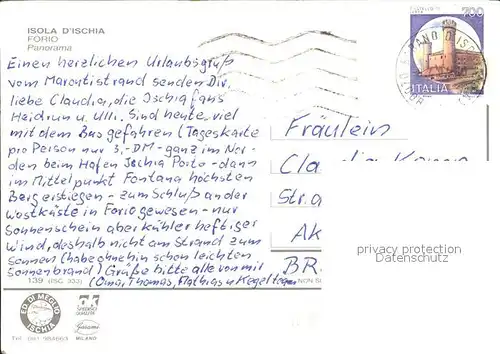 ISOLA D'ISCHIA
FORIO
Panorama
Einen herzlichen Urlaubsgruß
vom Marontistrand senden Dir,
liebe Claudia, die Ischiafans
Heidrun u. Ulli. Sind heute viel
mit dem Bus gefahren (Tageskarte
pro Person nur 3,-DM - ganz im Nor-
den beim Hafen Ischia Porto - dann
im Mittelpunkt Fontana höchsten
Berg erstiegen - zum Schluß an der
Westküste in Forio gewesen - nur
Sonnenschein aber kühler heftiger
Wind, deshalb nicht am Strand zum
Sonnen (habe ohnehin schon leichten
Sonnenbrand) Grüße bitte alle von mir
(Oma, Thomas, Mathias u Kegelteam
139 (ISC. 333)
ED. DI MEGLIO
ISCHIA
Tel. 081
MILANO
700
ITALIA
Fräulein
Str. a
Ak
BR
privacy protection
Datenschutz